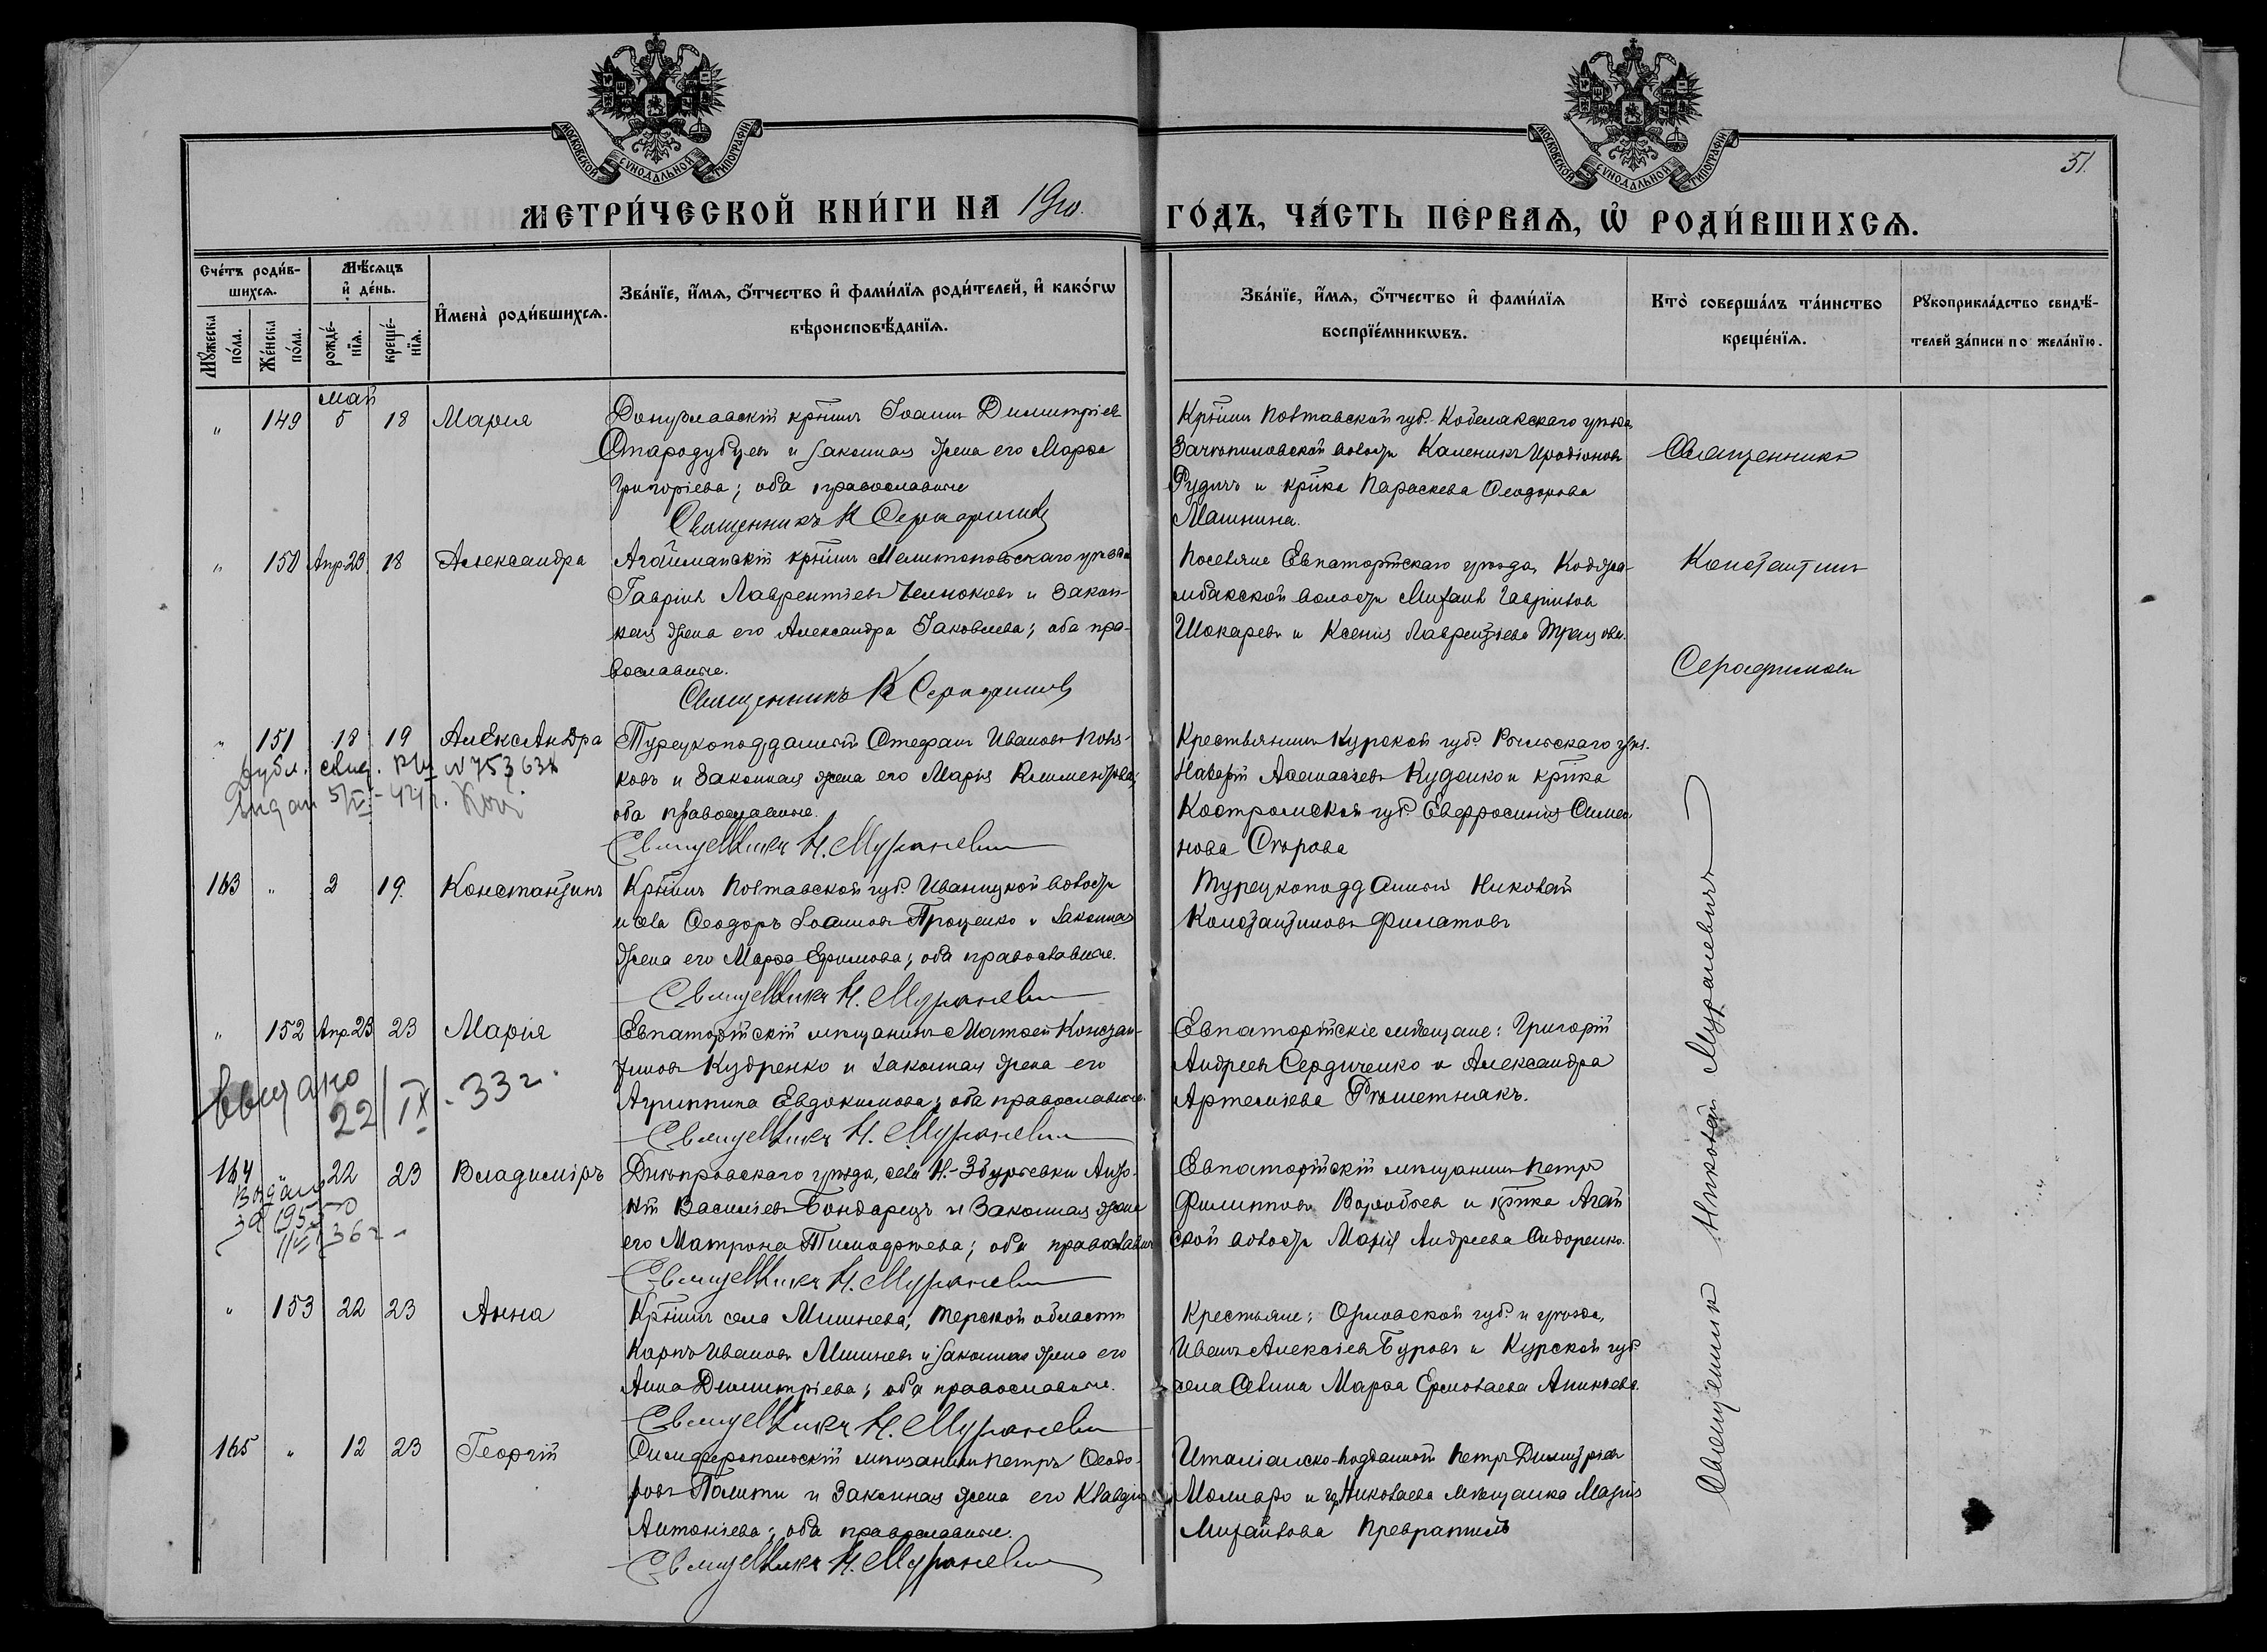 МОСКОВСКОЙ СѴНОДАЛЬНОЙ ТИПОГРАФІИ
МОСКОВСКОЙ СѴНОДАЛЬНОЙ ТИПОГРАФІИ
51.
МЕТРИ́ЧЕСКОЙ КНИ́ГИ НА 1910. ГО́ДЪ, ЧА́СТЬ ПЕ́РВАѦ, Ѡ҆ РОДИ́ВШИХСѦ.
Сче́тъ роди́в-
шихсѧ.
Мꙋ́жеска по́ла.
Же́нска по́ла.
Мѣ́сѧцъ
и҆ де́нь.
рожде́-нїѧ.
креще́-нїѧ.
И҆мена̀ роди́вшихсѧ.
Зва́нїе, и҆́мѧ, ѻ҆́тчество и҆ фами́лїѧ роди́телей, и҆ како́гѡ
вѣроисповѣ́данїѧ.
Зва́нїе, и҆́мѧ, ѻ҆́тчество и҆ фами́лїѧ
воспрїе́мникѡвъ.
Кто̀ соверша́лъ та́инство
креще́нїѧ.
Рꙋкоприкла́дство свидѣ́-
телей за́писи по жела́нїю.
май
" 149 5 18 Марія
Донузлавскій крѣнинъ Іоаннъ Димитріевъ
Стародубцевъ и законная жена его Марѳа
Григоріева; оба православные
Священникъ К Серафимовъ
Крѣнинъ Полтавской губ. Кобелякского уѣзда,
Зачепиловской волости Каленикъ Иродіоновъ
Рудичъ и крѣнка Параскева Ѳеодорова
Машнина.
Священникъ
" 150 Апр. 23 18 Александра
Агайманскій крѣнинъ Мелитопольскаго уѣзда
Гавріилъ Лаврентіевъ Челноковъ и закон-
ная жена его Александра Іаковлева; оба пра-
вославные.
Священникъ К Серафимовъ
Поселяне Евпаторійскаго уѣзда, Коджа-
мбакской волости Михаилъ Гавріиловъ
Шокаревъ и Ксенія Лаврентіева
Константинъ
Серафимовъ
" 151 18 19 Александра
дубл. свид.
N 753638
Выдан
44 г.
Турецкоподданный Стефанъ Ивановъ Поля-
ковъ и законная жена его Марія Климентова;
оба православные.
Священникъ Н. Муралевичъ
Крестьянинъ Курской губ. Рыльскаго уѣз.
Аѳанасіевъ Куденко и крѣнка
Костромской губ. Евфросинія Симео
нова Егорова
163 " 2 19. Константинъ
Крѣнинъ Полтавской губ. Иваницкой волости
и села Ѳеодоръ Іоанновъ Проценко и законная
жена его Марѳа Ефимова; оба православные.
Священникъ Н. Муралевичъ
Турецкоподданный Николай
Константиновъ Филатовъ
" 152 Апр. 23 23 Марія
Выдано
22/IX - 33 г.
Евпаторійскій мѣщанинъ Матѳей Констан-
тиновъ Кудренко и законная жена его
Агриппина Евдокимова; оба православные.
Священникъ Н. Муралевичъ
Евпаторійскіе мѣщане: Григорій
Андреевъ Сердиченко и Александра
Артеміева Рѣшетнякъ.
164 22 23 Владиміръ
36 г
Днѣпровскаго уѣзда, села Н.-Збурьевки Анто-
ній Василіевъ Бондарецъ и законная жена
его Матрона Тимоѳеева; оба православн
Священникъ Н. Муралевичъ
Евпаторійскій мѣщанинъ Петръ
Филипповъ Воробьевъ и крѣнка Агай
ской волости Марія Андреева Сидоренко.
" 153 22 23 Анна
Крѣнинъ села Мишнева, Терской области
Карпъ Ивановъ Мишневъ и законная жена его
Анна Димитріева; оба православные.
Священникъ Н. Муралевичъ
Крестьяне: Орловской губ. и уѣзда,
Иванъ Алексіевъ Буровъ и Курской губ
села Марѳа Ермолаева Аникѣева.
165 " 12 23 Георгій
Симферопольскій мѣщанинъ Петръ Ѳеодо-
ровъ Полити и законная жена его Клавдія
Антоніева; оба православные.
Священникъ Н. Муралевичъ
Италіанско-подданный Петръ Димитріевъ
Молнаро и г. Николаева мѣщанка Марія
Михайлова Превратиль
Священникъ Николай Муралевичъ